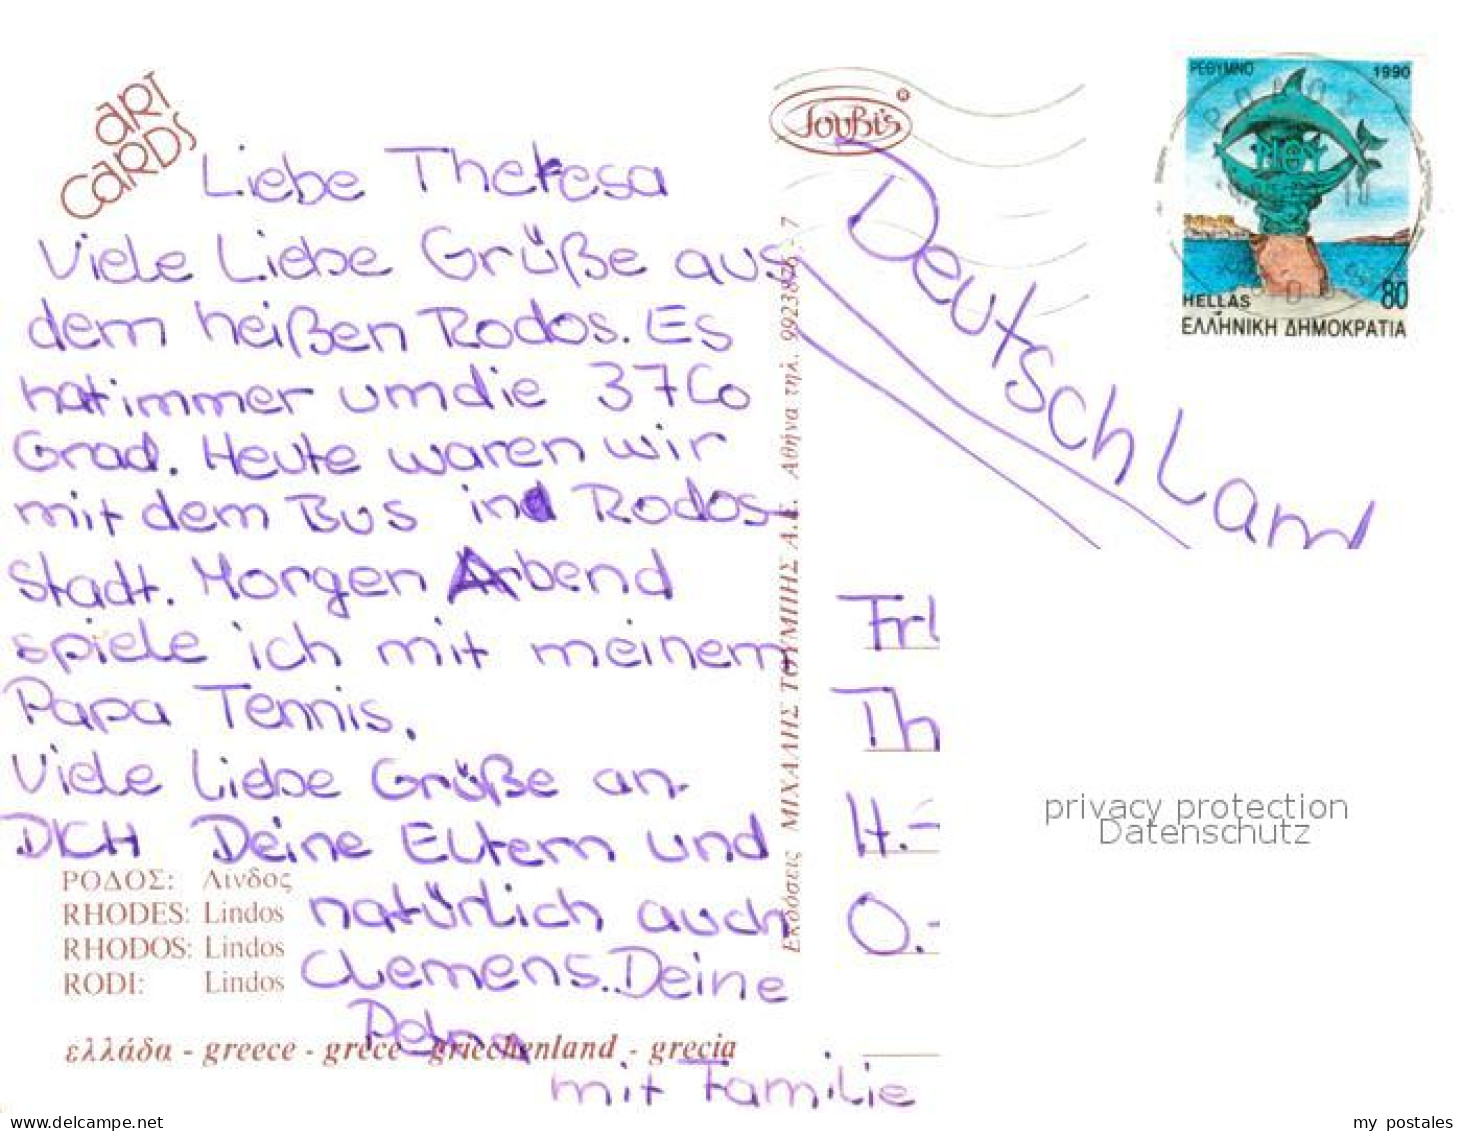 art
cards
Liebe Theresa
Viele Liebe Grüße aus
dem heißen Rodos. Es
hat immer um die 37 Co
Grad. Heute waren wir
mit dem Bus in Rodos-
Stadt. Morgen Abend
spiele ich mit meinem
Papa Tennis.
Viele liebe Grüße an
DICH Deine Eltern und
natürlich auch
Clemens. Deine
mit Familie
ΡΟΔΟΣ: Λίνδος
RHODES: Lindos
RHODOS: Lindos
RODI: Lindos
ελλάδα - greece - grèce - griechenland - grecia
Εκδόσεις ΜΙΧΑΛΗΣ ΤΟΥΜΠΗΣ Α.Ε. Αθήνα τηλ. 9923876 - 7
TOUBI'S
ΡΕΘΥΜΝΟ 1990
HELLAS 80
ΕΛΛΗΝΙΚΗ ΔΗΜΟΚΡΑΤΙΑ
Deutschland
Frl
Th
H.-
O.-
privacy protection
Datenschutz
www.delcampe.net
my_postales